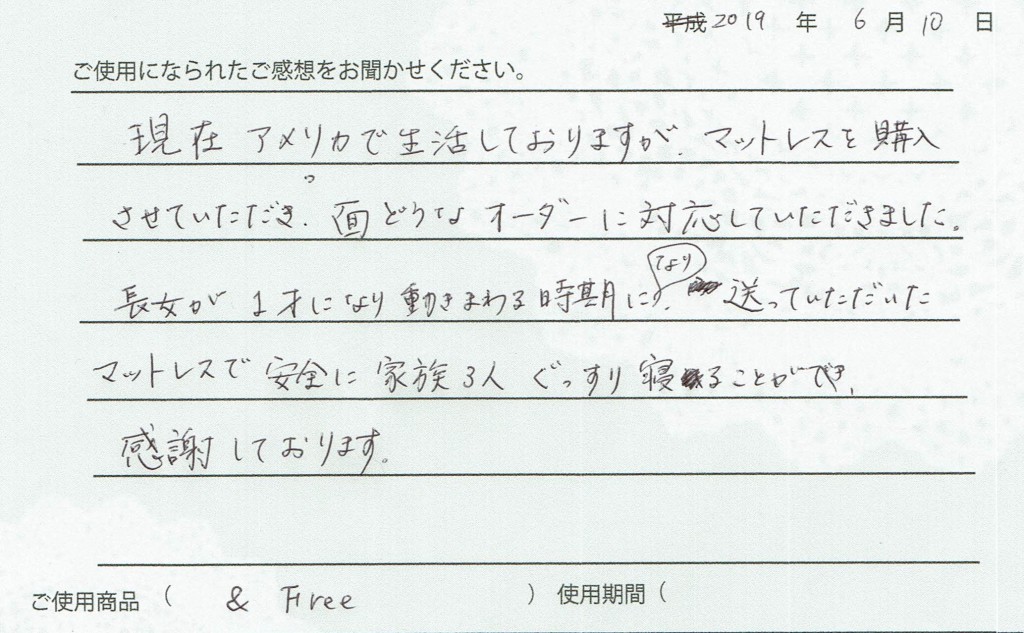 平成2019 年 6 月 10 日
ご使用になられたご感想をお聞かせください。
現在 アメリカで生活しておりますが、マットレスを購入
させていただき、面どうなオーダーに対応していただきました。
長女が 1才になり動きまわる時期になり、送っていただいた
マットレスで 安全に 家族3人 ぐっすり 寝ることができ、
感謝しております。
ご使用商品 ( & Free ) 使用期間 (